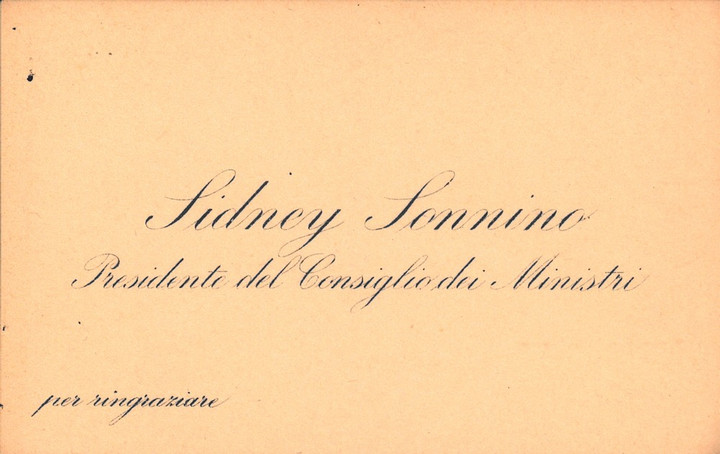 Sidney Sonnino
Presidente del Consiglio dei Ministri
per ringraziare